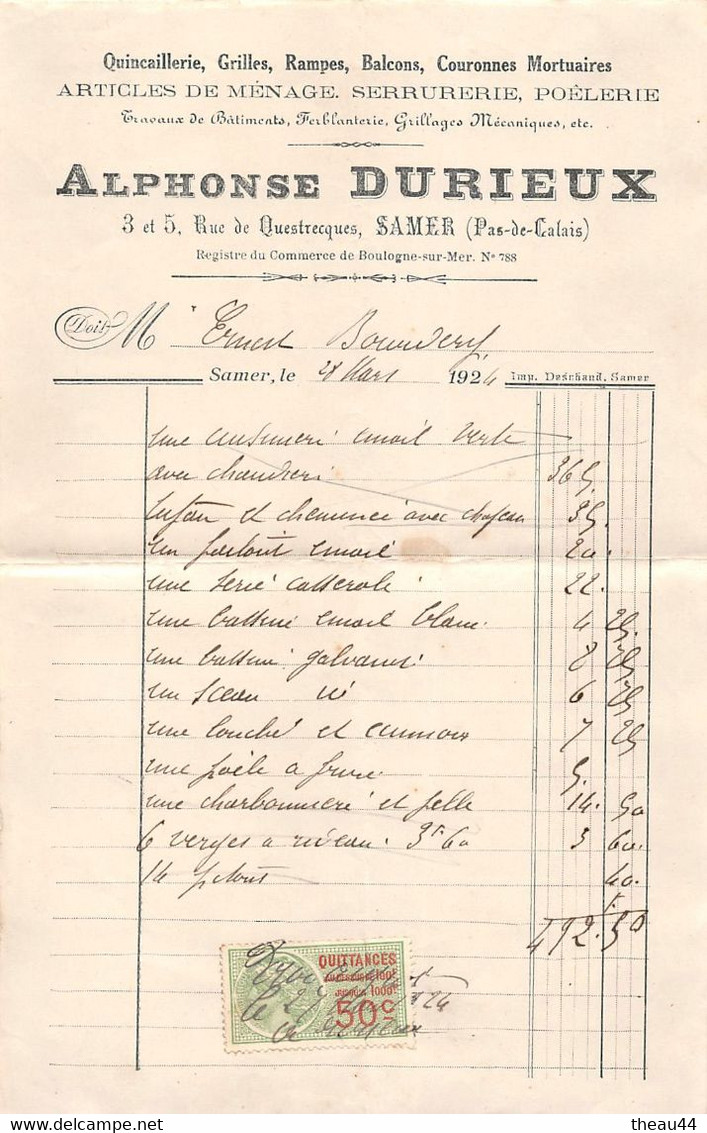 Quincaillerie, Grilles, Rampes, Balcons, Couronnes Mortuaires
ARTICLES DE MÉNAGE. SERRURERIE, POÊLERIE
Travaux de Bâtiments, Ferblanterie, Grillages Mécaniques, etc.
ALPHONSE DURIEUX
3 et 5, Rue de Questrecques, SAMER (Pas-de-Calais)
Registre du Commerce de Boulogne-sur-Mer. N° 788
Doit M Ernest
Samer, le 28 Mars 1924 Imp. Deschand, Samer
une email verte
avec 365.
et cheminee avec chapeau 35.
un email 20.
une serie casserole 22.
une bassine email blanc 4 25.
une bassine galvanisé 8 25
un sceau 6 25
une louche et 7 25
une poêle a frire 5.
une charbonniere et pelle 14. 50
6 verges a rideau. 3f 60 3 60.
14 pitons 40.
492.50
QUITTANCES
AU-DESSUS DE 100F
JUSQU'A 1000F
50c
le 24
theau44